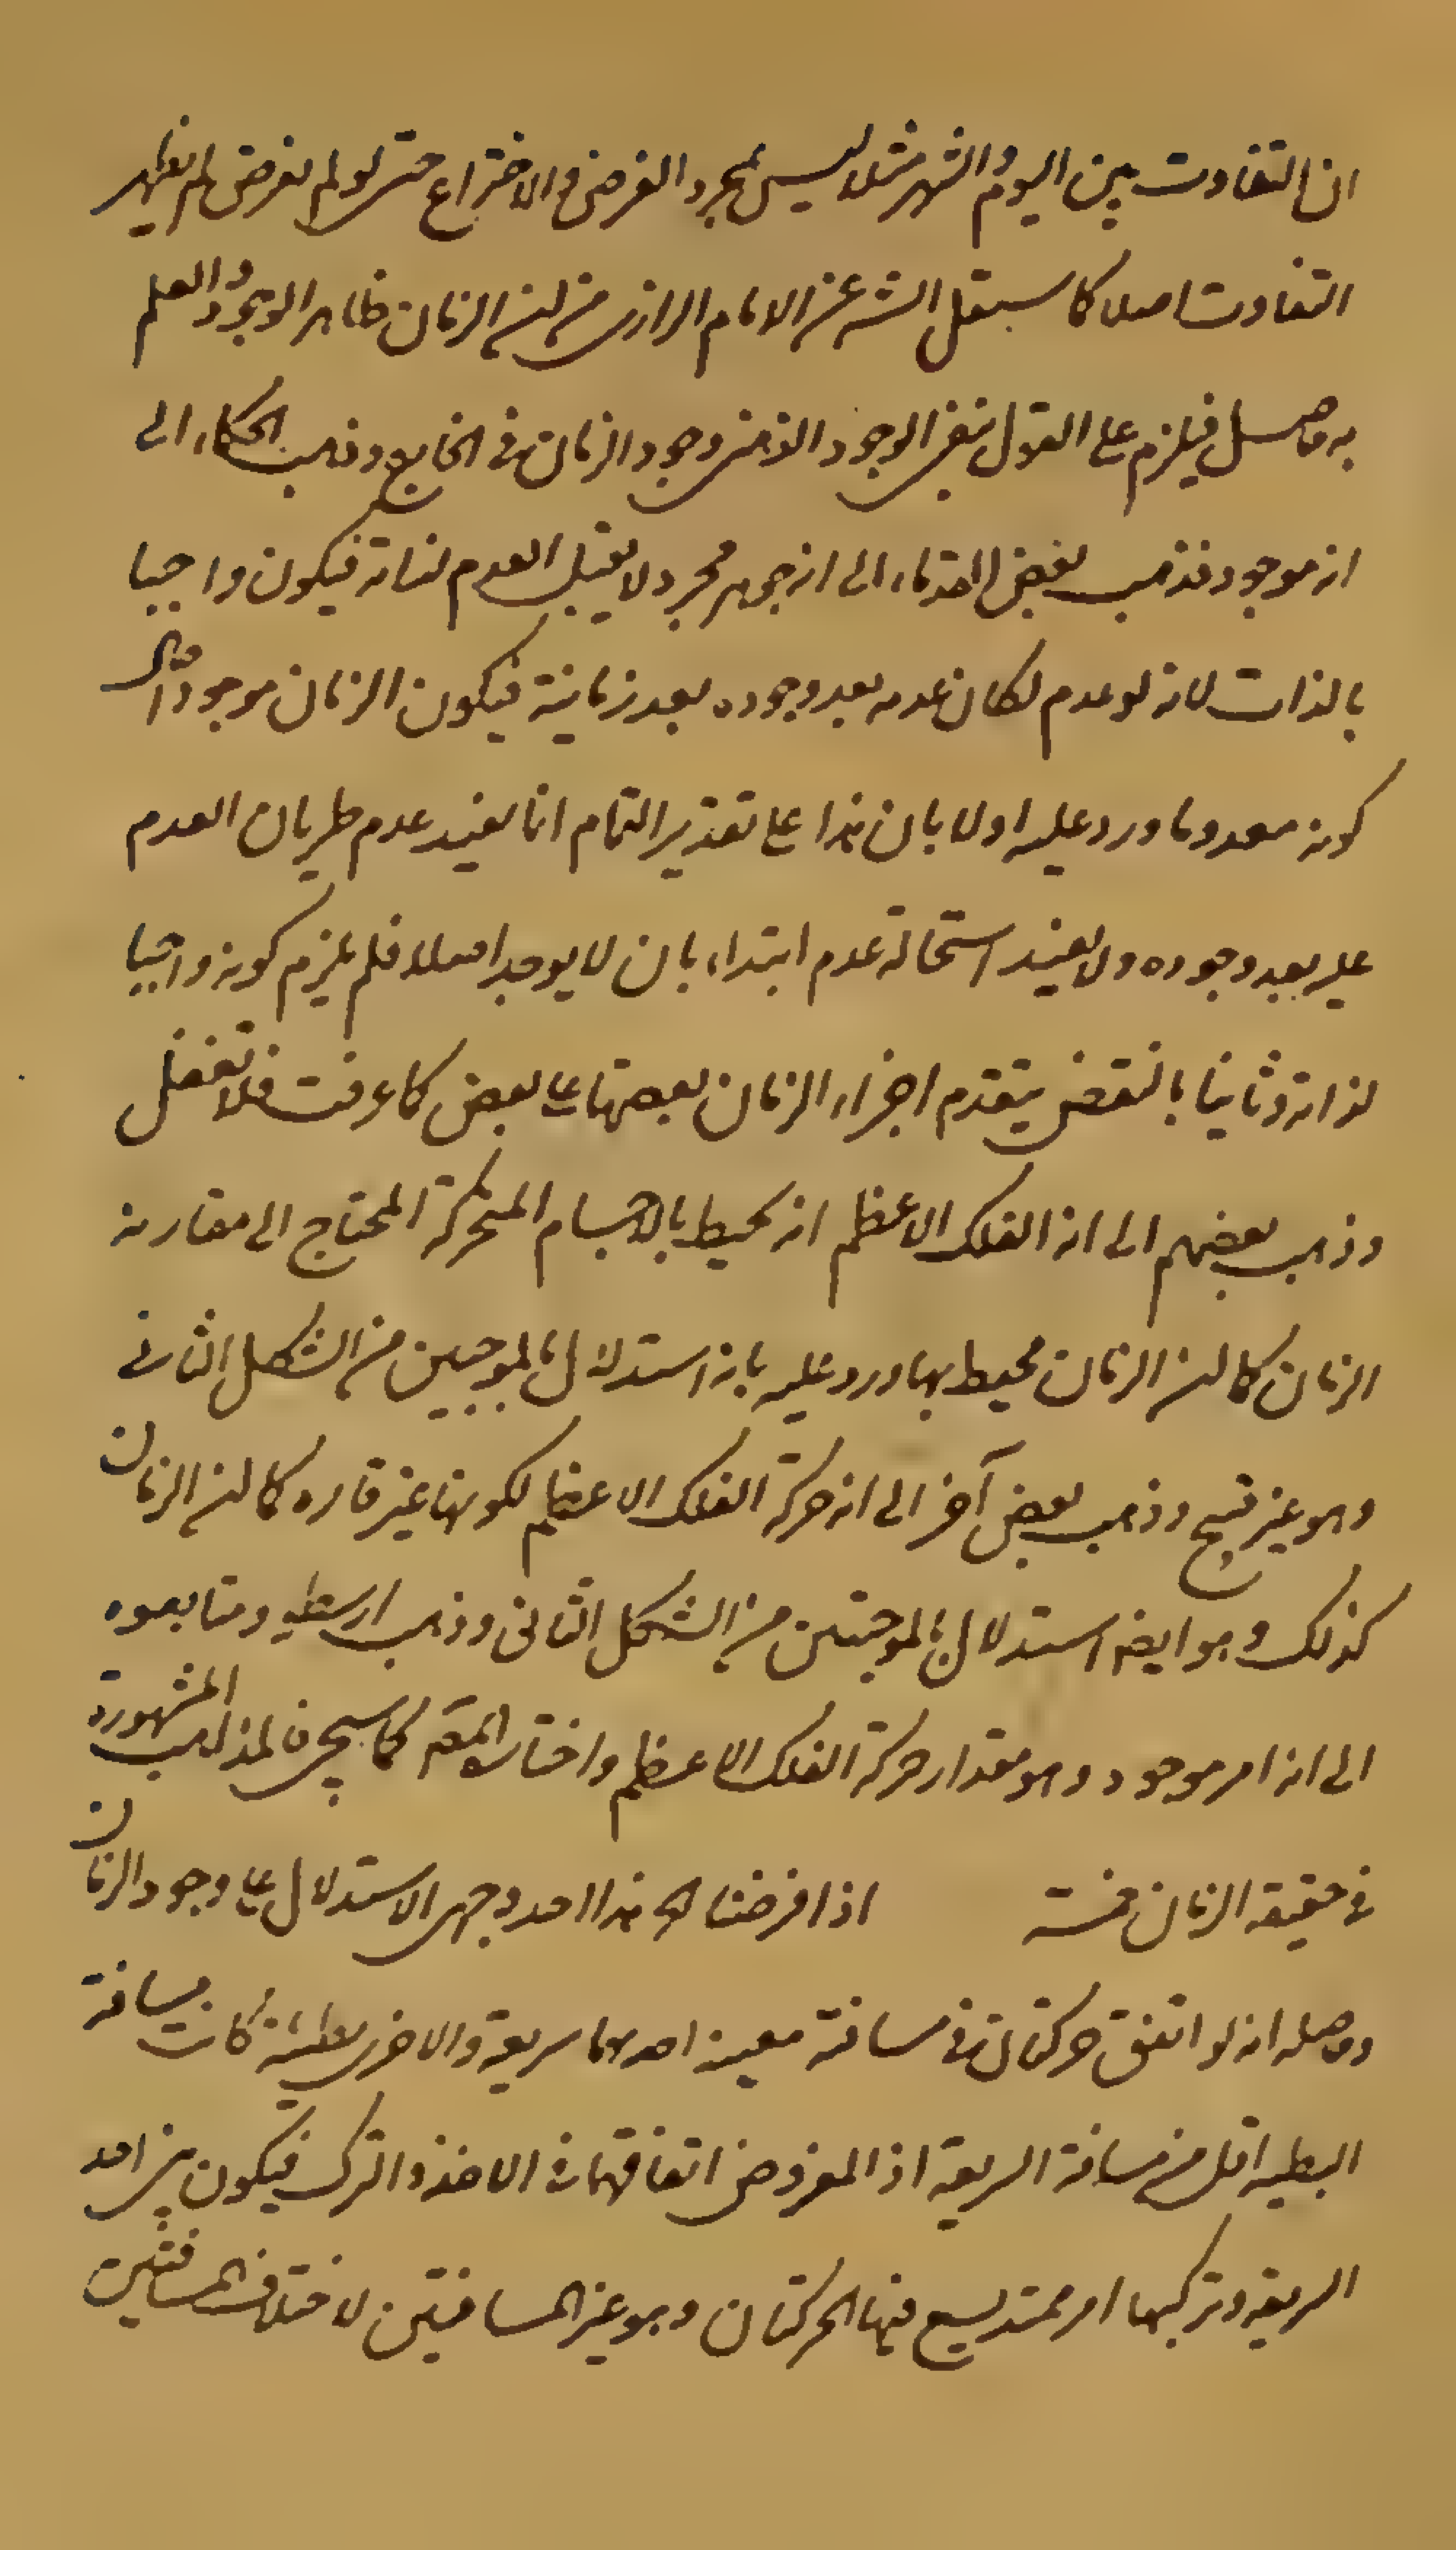 ان التفاوت بين اليوم والشهر مثلا ليس بمجرد الفرض والاختراع حتى لو لم نفرض لم يظهر
التفاوت اصلا كما سينقل الشه عن الامام الرازى من ان الزمان ظاهر الوجود والعلم
به حاصل فيلزم على القول بنفى الوجود الذهنى وجود الزمان فى الخارج وذهب الحكماء الى
انه موجود فذهب بعض القدماء الى انه جوهر مجرد لا يقبل العدم لذاته فيكون واجبا
بالذات لانه لو عدم لكان عدمه بعد وجوده بعد زمانية فيكون الزمان موجودا حال
كونه معدوما ورد عليه اولا بان هذا على تقدير التمام انما يفيد عدم طريان العدم
عليه بعد وجوده ولا يفيد استحالة عدمه ابتداء بان لا يوجد اصلا فلم يلزم كونه واجبا
لذاته وثانيا بالنقض بتقدم اجزاء الزمان بعضها على بعض كما عرفت فلا تغفل
وذهب بعضهم الى انه الفلك الاعظم انه محيط بالاجسام المتحركة المحتاج الى مقارنة
الزمان كما ان الزمان محيط بها ورد عليه بانه استدلال بالموجبتين من الشكل الثانى
وهو غير منتج وذهب بعض آخر الى انه حركة الفلك الاعظم لكونها غير قاره كما ان الزمان
كذلك وهو ايضا استدلال بالموجبتين من الشكل الثانى وذهب ارسطو ومتابعوه
الى انه امر موجود وهو مقدار حركة الفلك الاعظم واختاره المص كما سيجئ فالمذاهب المشهورة
فى حقيقة الزمان خمسة اذا فرضنا الخ هذا احد وجهى الاستدلال على وجود الزمان
وحاصله انه لو اتفق حركتان فى مسافة معينة احدهما سريعة والاخرى بطيئة كانت مسافة
البطيئة اقل من مسافة السريعة اذ المفروض اتفاقهما فى الاخذ والترك فيكون بين اخذ
السريعة وتركها امر ممتد يسع فيها الحركتان وهو غير المسافتين لاختلاف المسافتين